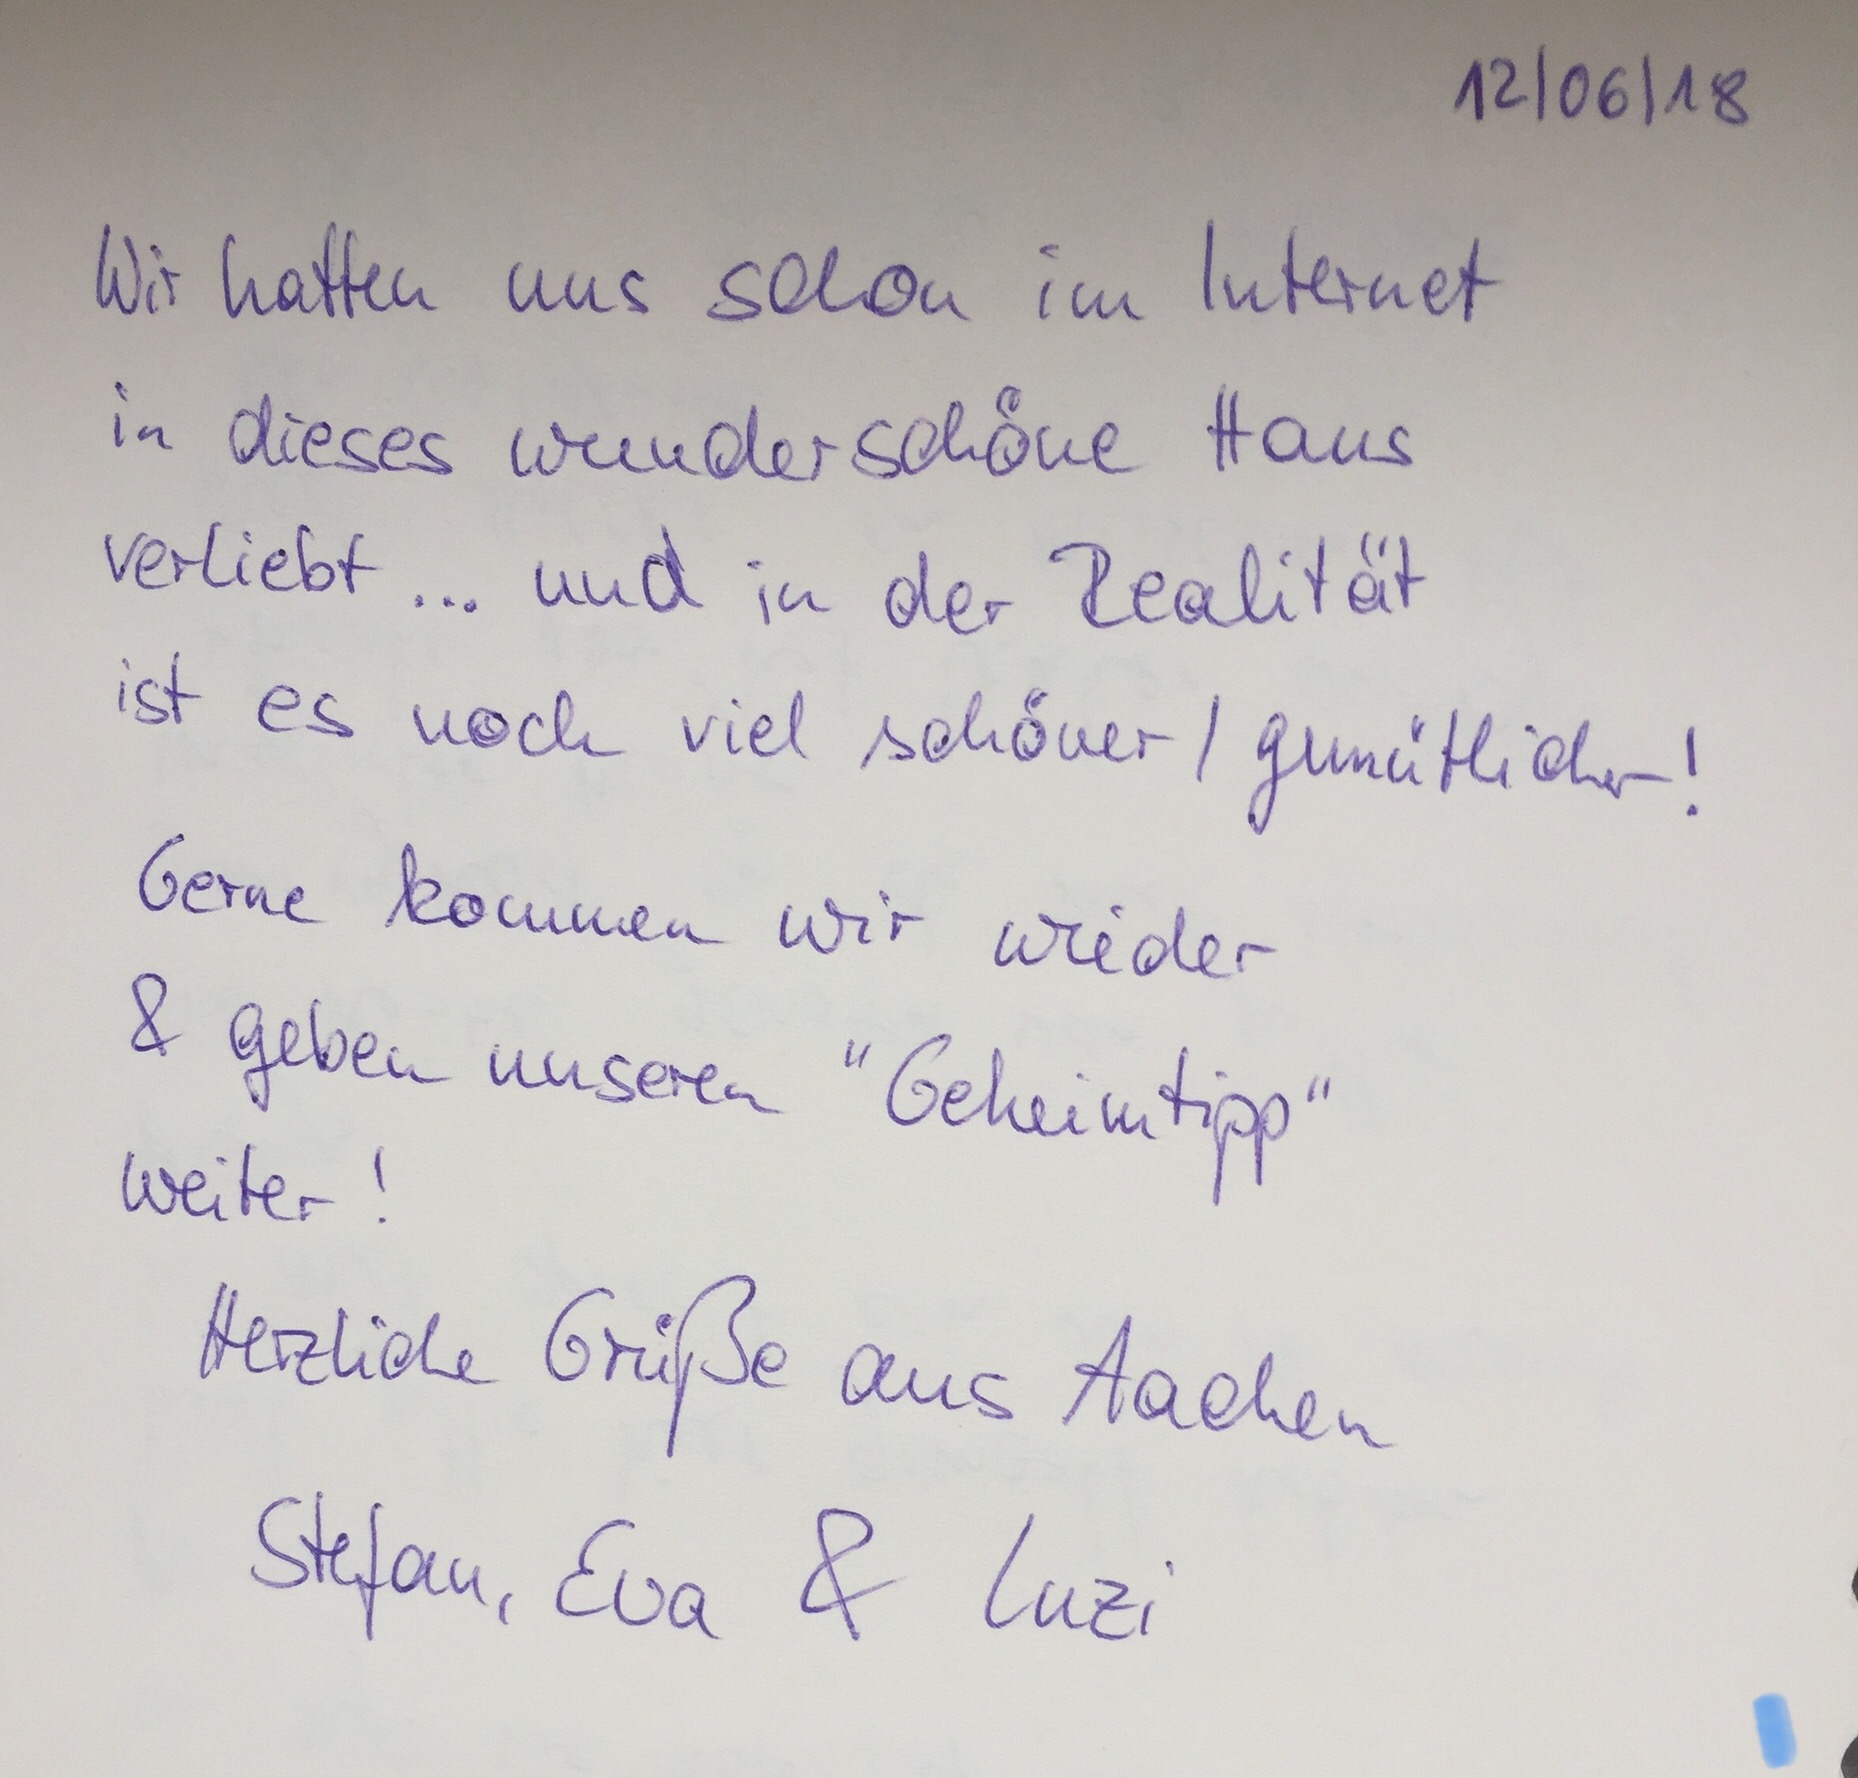 12/06/18
Wir hatten uns schon im Internet
in dieses wunderschöne Haus
verliebt ... und in der Realität
ist es noch viel schöner / gemütlicher!
Gerne kommen wir wieder
& geben unseren "Geheimtipp"
weiter!
Herzliche Grüße aus Aachen
Stefan, Eva & Luzi